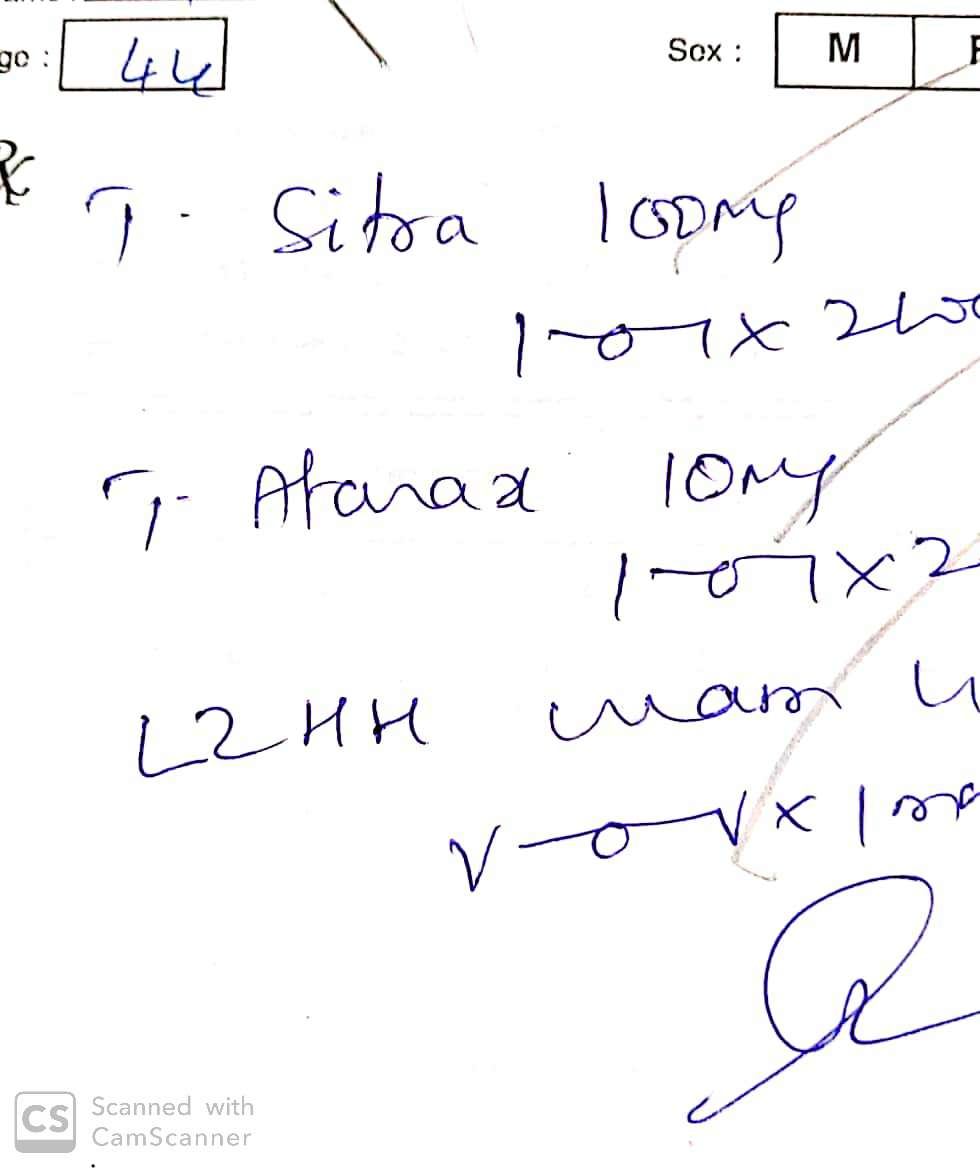 ge : 44 Sex : M F
Rx
T. Sitra 100mg
1-0-1 x 2
T. Atarax 10mg
1-0-1 x 2
L2HH
v-0-v x 1
CS Scanned with
CamScanner